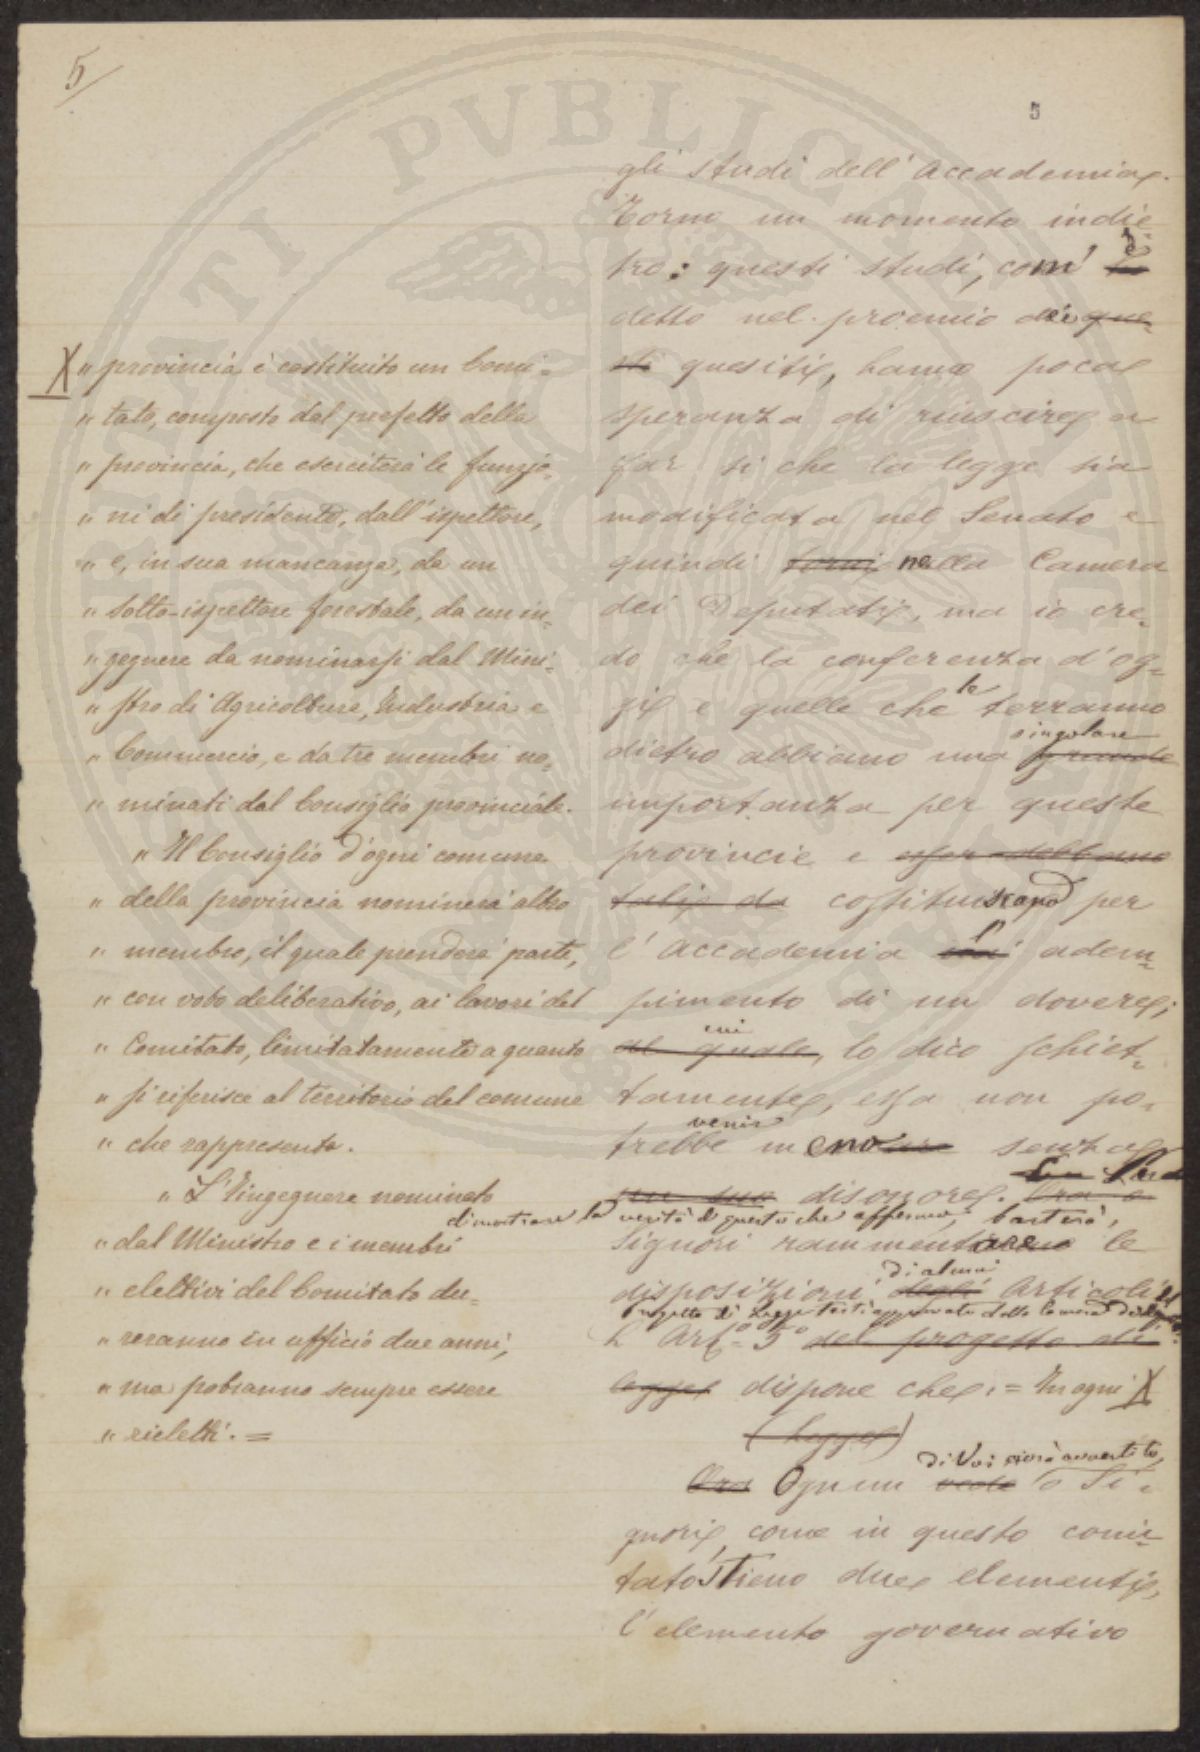 5
5
gli studi dell'accademia.
Torno un momento indie-
tro: questi studi, com' ho
detto nel proemio dei que-
sti quesiti, hanno poca
speranza di riuscire a
far sì che la legge sia
modificata nel Senato e
quindi torni nella Camera
dei Deputati, ma io cre-
do che la conferenza d'og-
gi e quelle che le terranno
singolare
dietro abbiano una grande
importanza per queste
provincie e
tali da costituiscano per
l'accademia l' adem-
pimento di un dovere;
cui
al quale, lo dico schiet-
tamente, essa non po-
venir
trebbe meno senza
un suo disonore. Ora o
dimostrare la verità di questo che affermo, basterà,
Signori rammentare le
di alcuni
disposizioni degli articoli
progetto di legge testè approvato dalla Camera dei
L'Art.º 5º del progetto di
legge dispone che: = In ogni X
(Legge)
di Voi avrà avvertito,
Ora Ognun vede o Si-
gnori, come in questo comi-
tato sieno due elementi,
l'elemento governativo
X " provincia è costituito un Comi-
" tato, composto dal prefetto della
" provincia, che eserciterà le funzio-
" ni di presidente, dall'ispettore,
" e, in sua mancanza, da un
" sotto-ispettore forestale, da un in-
" gegnere da nominarsi dal Mini-
" stro di Agricoltura, Industria e
" Commercio, e da tre membri no-
" minati dal Consiglio provinciale.
" Il Consiglio d'ogni comune
" della provincia nominerà altro
" membro, il quale prenderà parte,
" con voto deliberativo, ai lavori del
" Comitato, limitatamente a quanto
" si riferisce al territorio del comune
" che rappresenta.
" L'Ingegnere nominato
" dal Ministro e i membri
" elettivi del Comitato du-
" reranno in ufficio due anni,
" ma potranno sempre essere
" rieletti. =